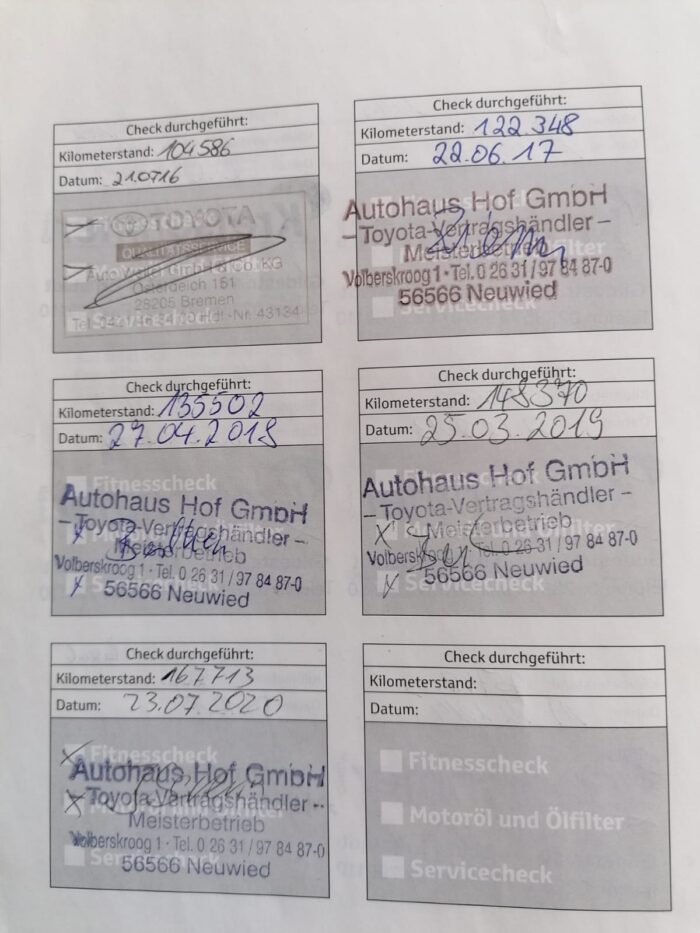 Check durchgeführt:
Kilometerstand: 104586
Datum: 210716
TOYOTA
QUALITÄTSSERVICE
GmbH & Co. KG
Osterdeich 151
28205 Bremen
Servicecheck
Nr. 43134
Check durchgeführt:
Kilometerstand: 122.348
Datum: 22.06.17
Autohaus Hof GmbH
-Toyota-Vertragshändler-
Meisterbetrieb
Volberskroog 1 · Tel. 0 26 31 / 97 84 87-0
56566 Neuwied
Servicecheck
Check durchgeführt:
Kilometerstand: 135502
Datum: 27.04.2018
Fitnesscheck
Autohaus Hof GmbH
-Toyota-Vertragshändler-
Meisterbetrieb
Volberskroog 1 · Tel. 0 26 31 / 97 84 87-0
56566 Neuwied
Check durchgeführt:
Kilometerstand: 148370
Datum: 25.03.2019
Autohaus Hof GmbH
-Toyota-Vertragshändler-
Meisterbetrieb
Volberskroog 1 · Tel. 0 26 31 / 97 84 87-0
56566 Neuwied
Servicecheck
Check durchgeführt:
Kilometerstand: 167713
Datum: 23.07.2020
Fitnesscheck
Autohaus Hof GmbH
-Toyota-Vertragshändler-
Meisterbetrieb
Volberskroog 1 · Tel. 0 26 31 / 97 84 87-0
56566 Neuwied
Check durchgeführt:
Kilometerstand:
Datum:
Fitnesscheck
Motoröl und Ölfilter
Servicecheck